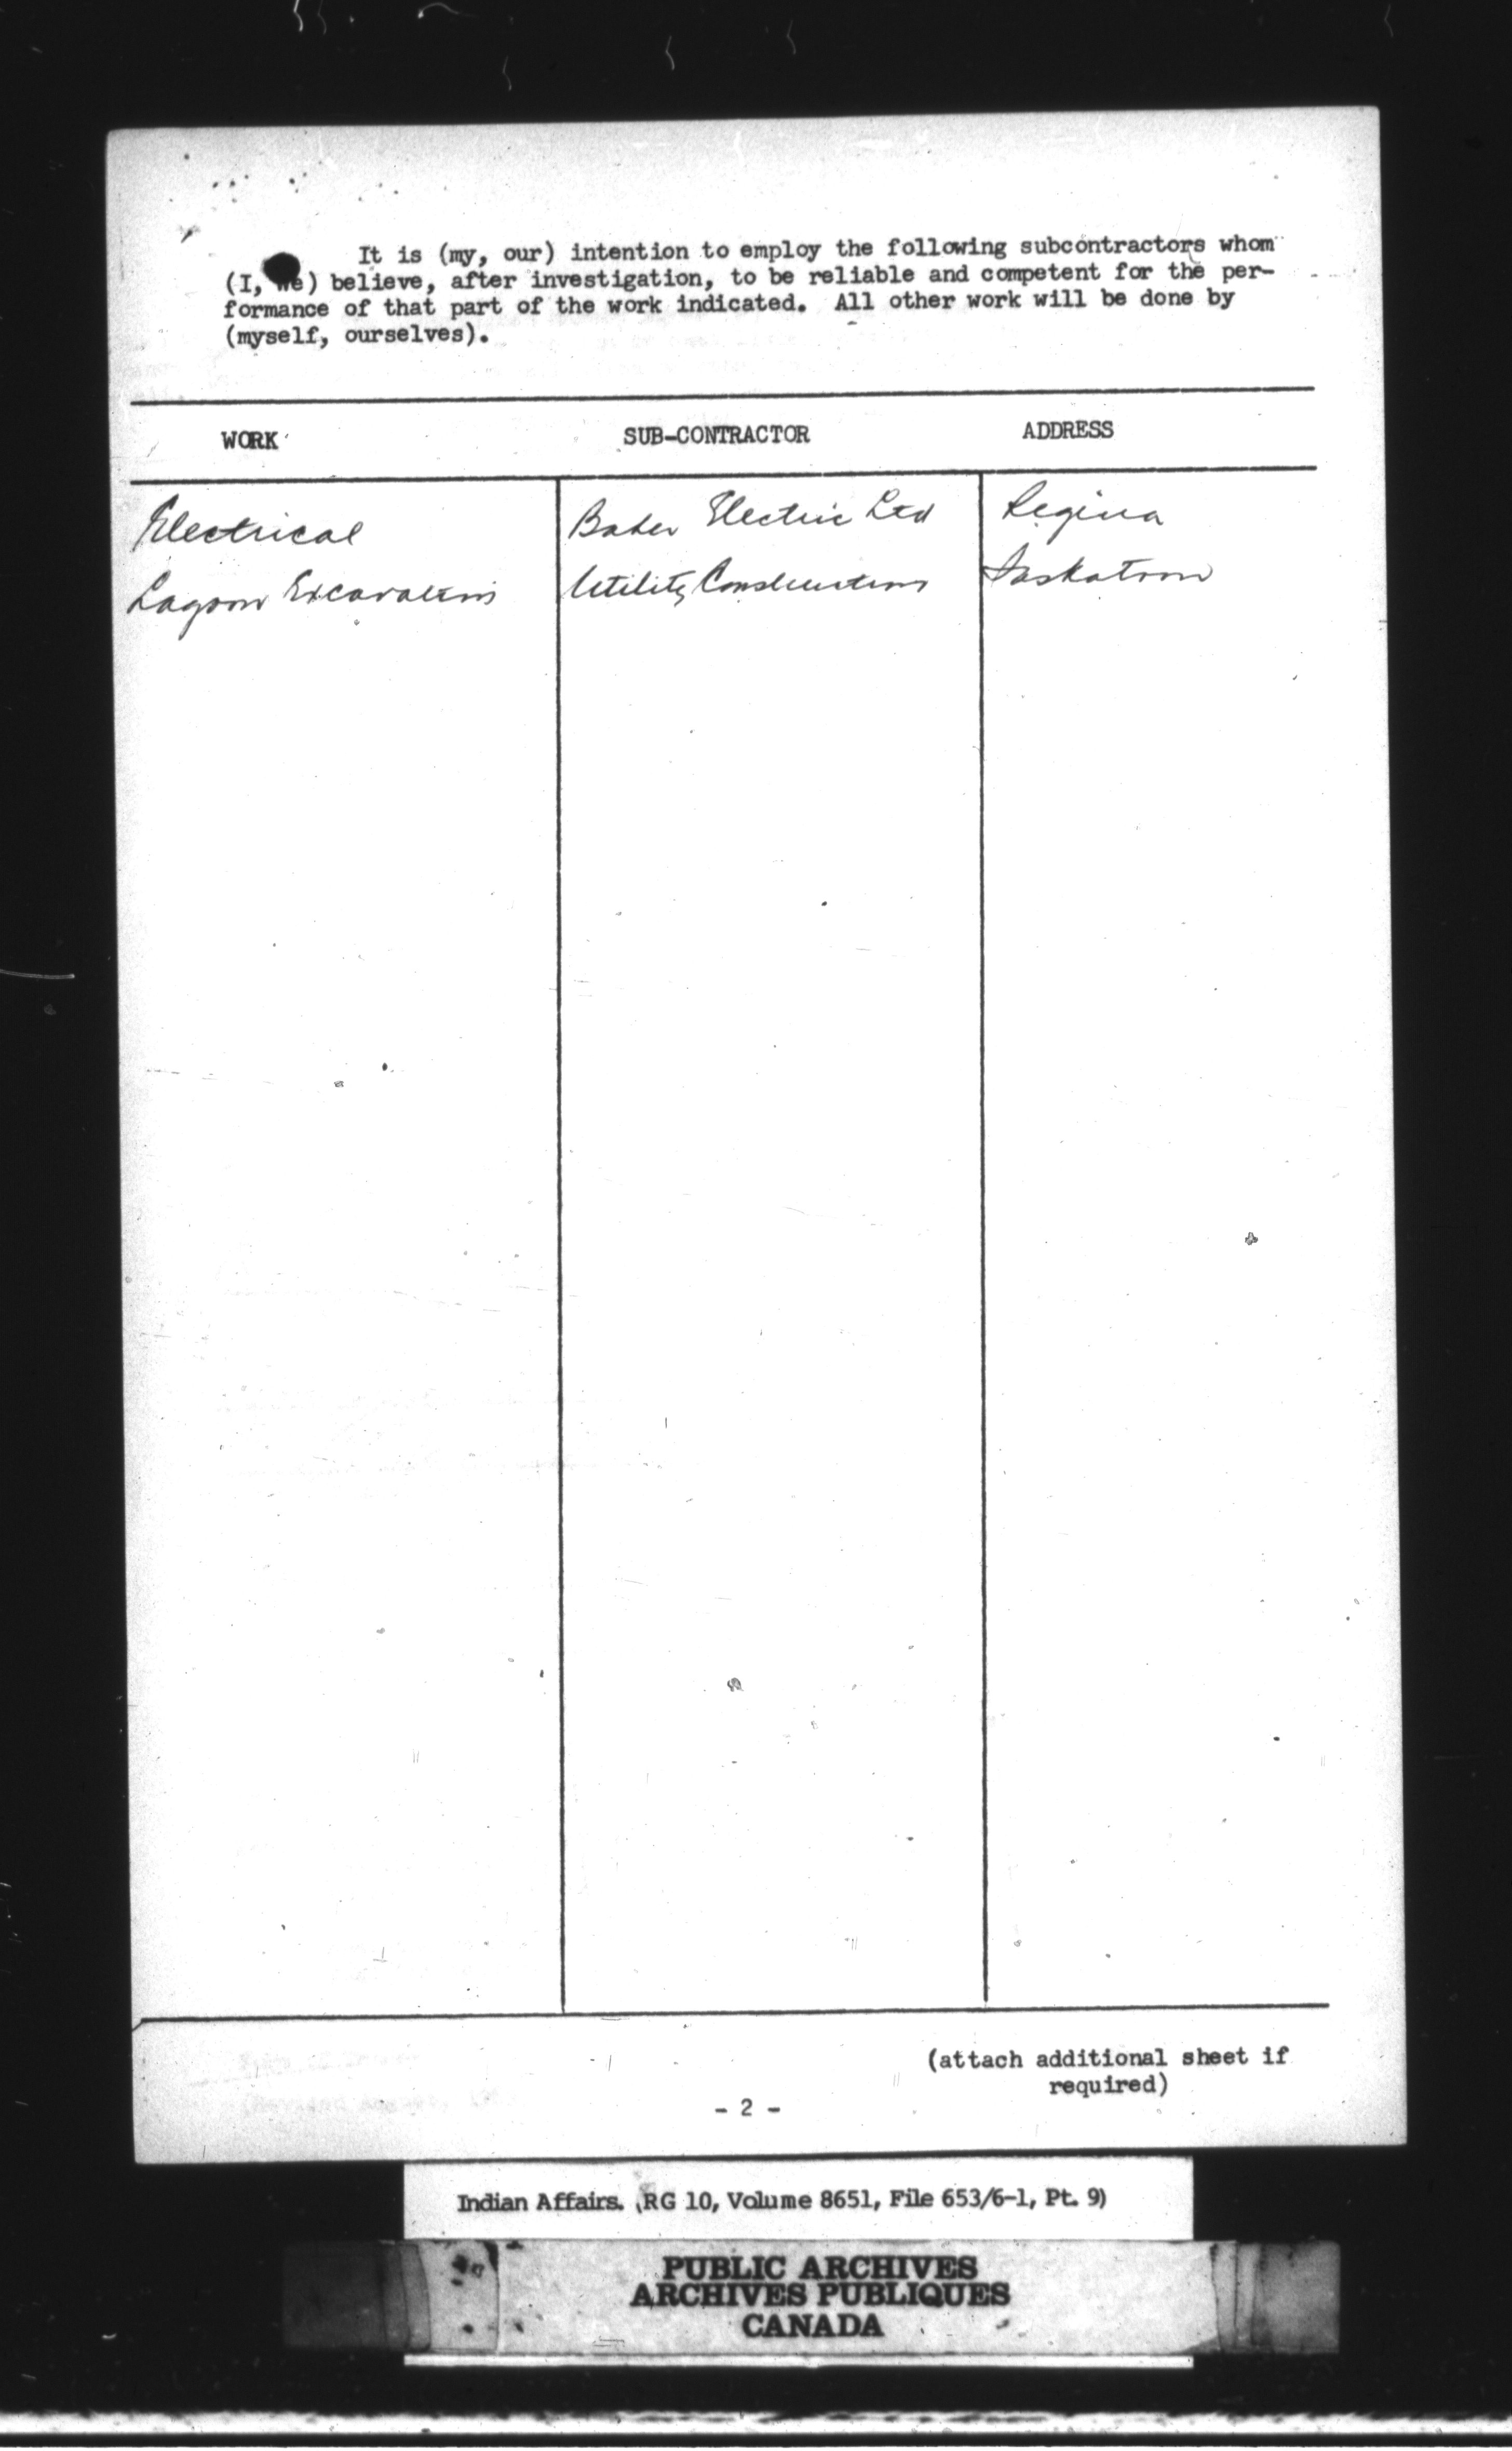 It is (my, our) intention to employ the following subcontractors whom
(I, we) believe, after investigation, to be reliable and competent for the per-
formance of that part of the work indicated. All other work will be done by
(myself, ourselves).
WORK SUB-CONTRACTOR ADDRESS
Electrical Baker Electric Ltd Regina
Lagoon Excavations Utility Construction Saskatoon
(attach additional sheet if
required)
- 2 -
Indian Affairs. (RG 10, Volume 8651, File 653/6-1, Pt. 9)
PUBLIC ARCHIVES
ARCHIVES PUBLIQUES
CANADA